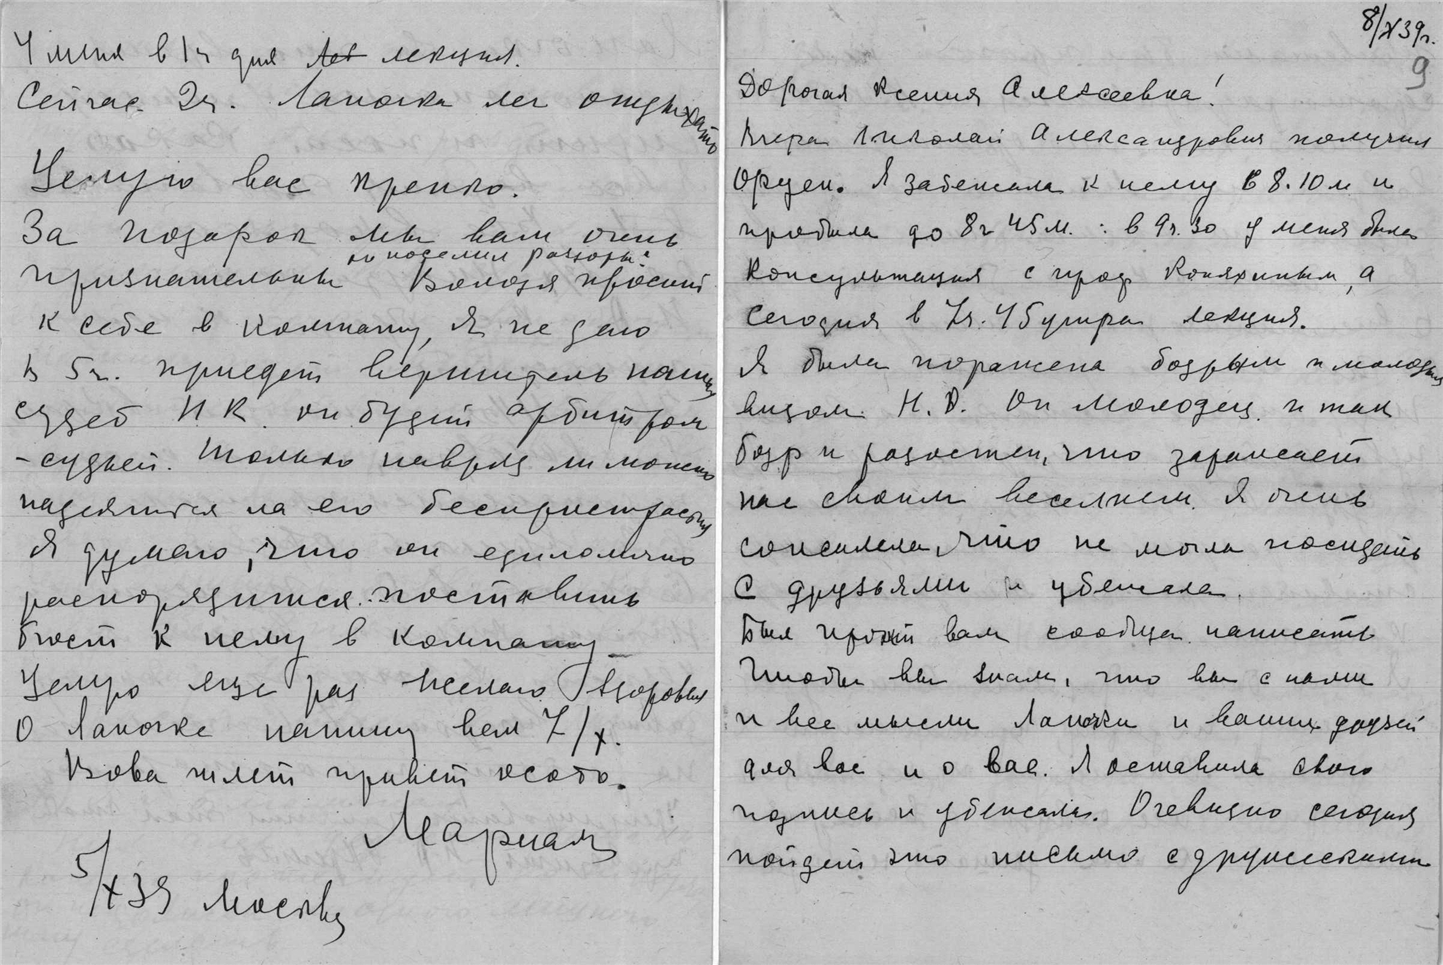 У меня в 1ч дня лекция.
Сейчас 2ч. Лапочка лег отдыхать
Целую вас крепко.
За подарок мы вам очень
признательны Володя просит
но поделил разговоры
к себе в комнату, я не даю
В 5ч. приедет вершитель наших
судеб Н К. он будет арбитром
-судьей. Только навряд ли можно
надеяться на его беспристрастия
Я думаю, что он единолично
распорядится поставить
бюст к нему в комнату
Целую еще раз желаю здоровья
О Лапочке напишу вам 7/X.
Вова шлет привет особо.
Мариам
5/X 39 Москва
8/X 39г.
9
Дорогая Ксения Алексеевна!
Вчера Николай Александрович получил
Орден. Я забежала к нему в 8.10м и
пробыла до 8ч 45м. : в 9ч.30 у меня была
консультация с проф Коняхиным, а
сегодня в 7ч.45 утра лекция.
Я была поражена бодрым и молодым
видом Н. А. Он молодец и так
бодр и радостен, что заражает
нас своим весельем. Я очень
сожалела, что не могла посидеть
с друзьями и убежала.
Был проект вам сообща написать
Чтобы вы знали, что вы с нами
и все мысли Лапочки и ваших друзей
для вас и о вас. Я оставила свою
подпись и убежала. Очевидно сегодня
пойдет это письмо с дружескими